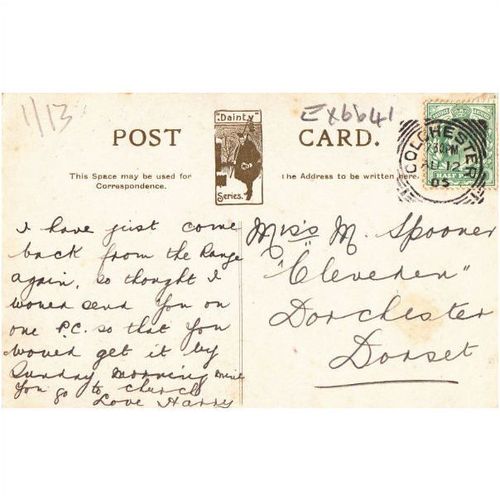 1/13
Ex6641
"Dainty"
Series.
POST CARD.
This Space may be used for
Correspondence.
The Address to be written here.
COLCHESTER
PM
12
05
HALF
I have just come
back from the Range
again, so thought I
would send you on
one P.C. so that you
would get it by
Sunday morning mind
you go to church
Love Harry
Miss M. Spooner
"Cleveden"
Dorchester
Dorset